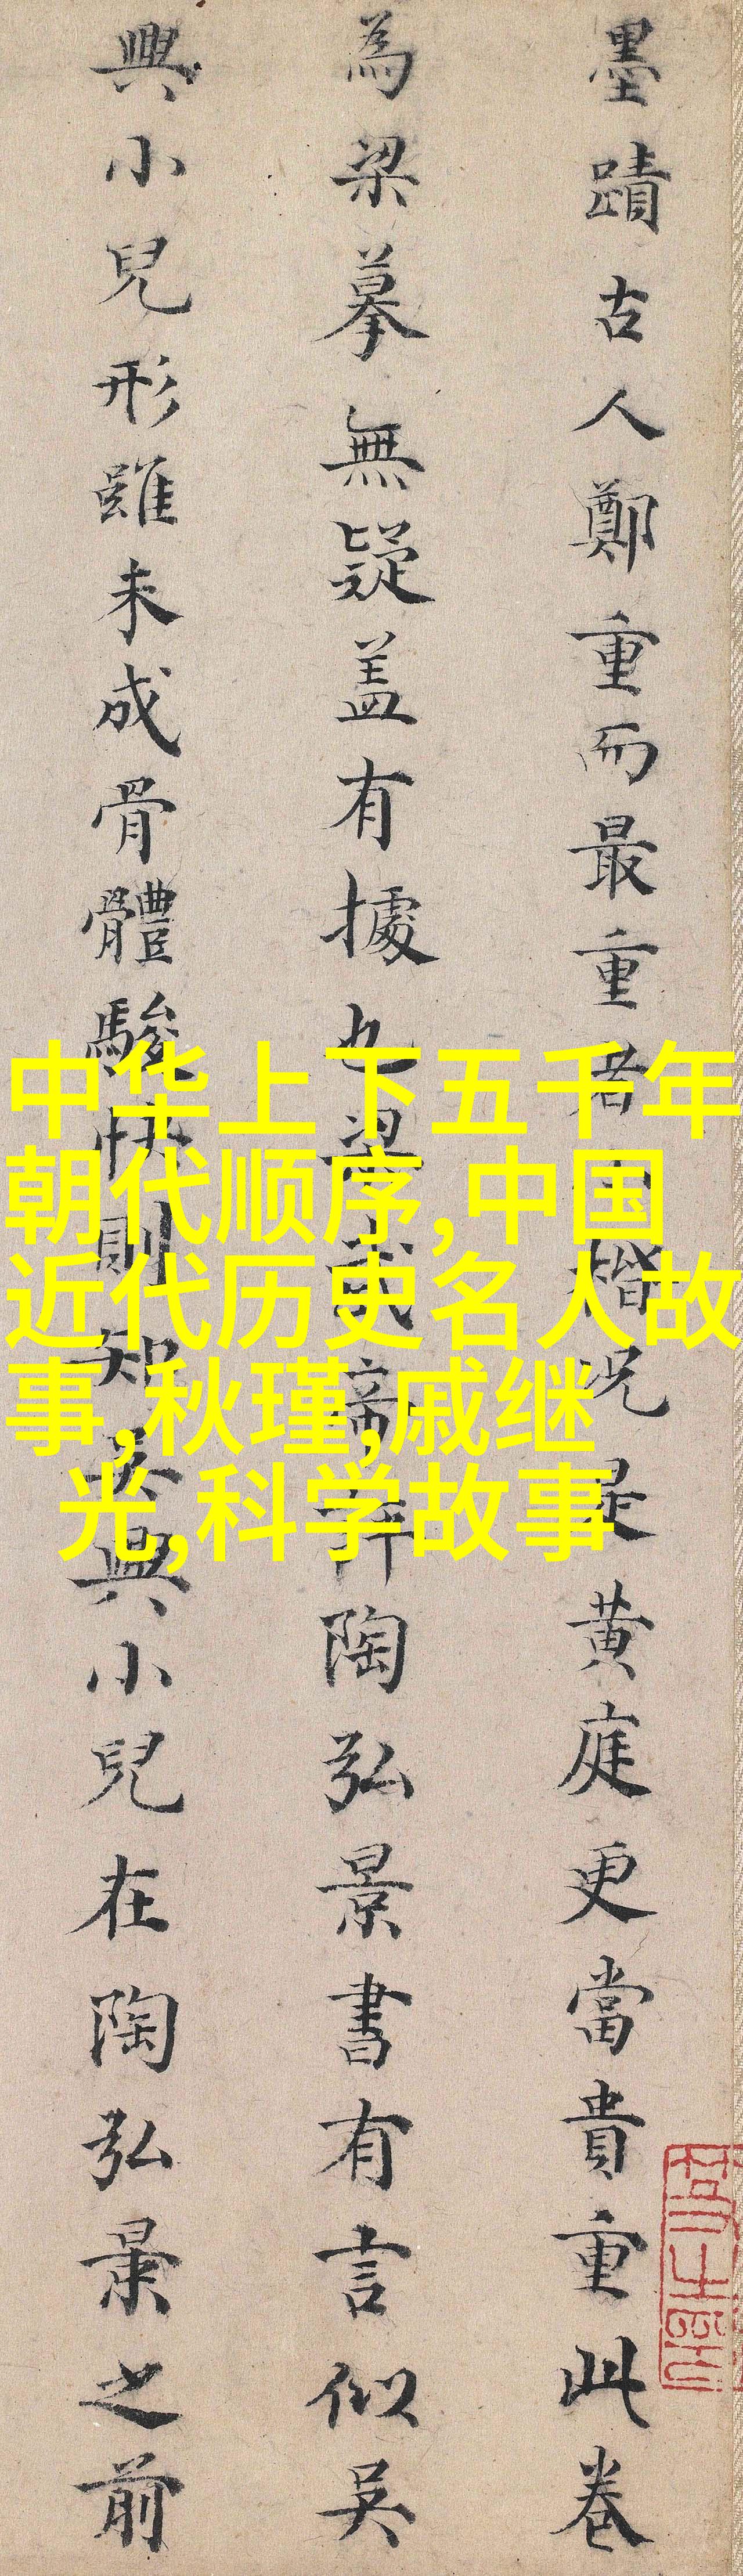 墨蹟古人鄭重而最重者楷況是黄庭更當貴重此卷
為梁摹無疑盖有據也梁武帝評陶弘景書有言似吴
興小兒形雖未成骨體駿快則知吴興小兒在陶弘景之前
中华上下五千年
朝代顺序,中国
近代历史名人故
事,秋瑾,戚继
光,科学故事